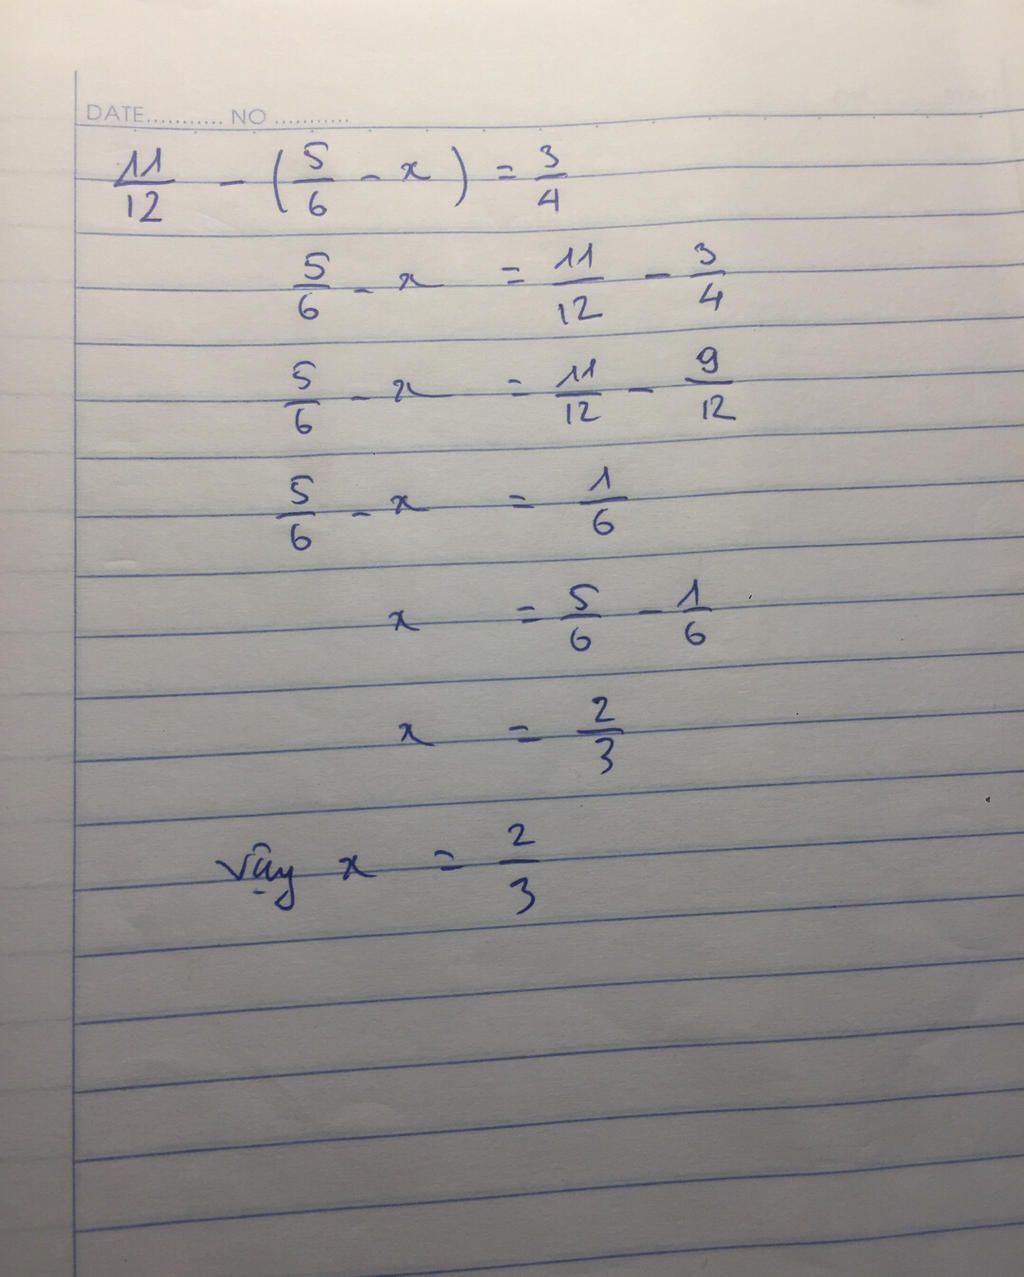 DATE........... NO ...........
11/12 - (5/6 - x) = 3/4
5/6 - x = 11/12 - 3/4
5/6 - x = 11/12 - 9/12
5/6 - x = 1/6
x = 5/6 - 1/6
x = 2/3
Vậy x = 2/3